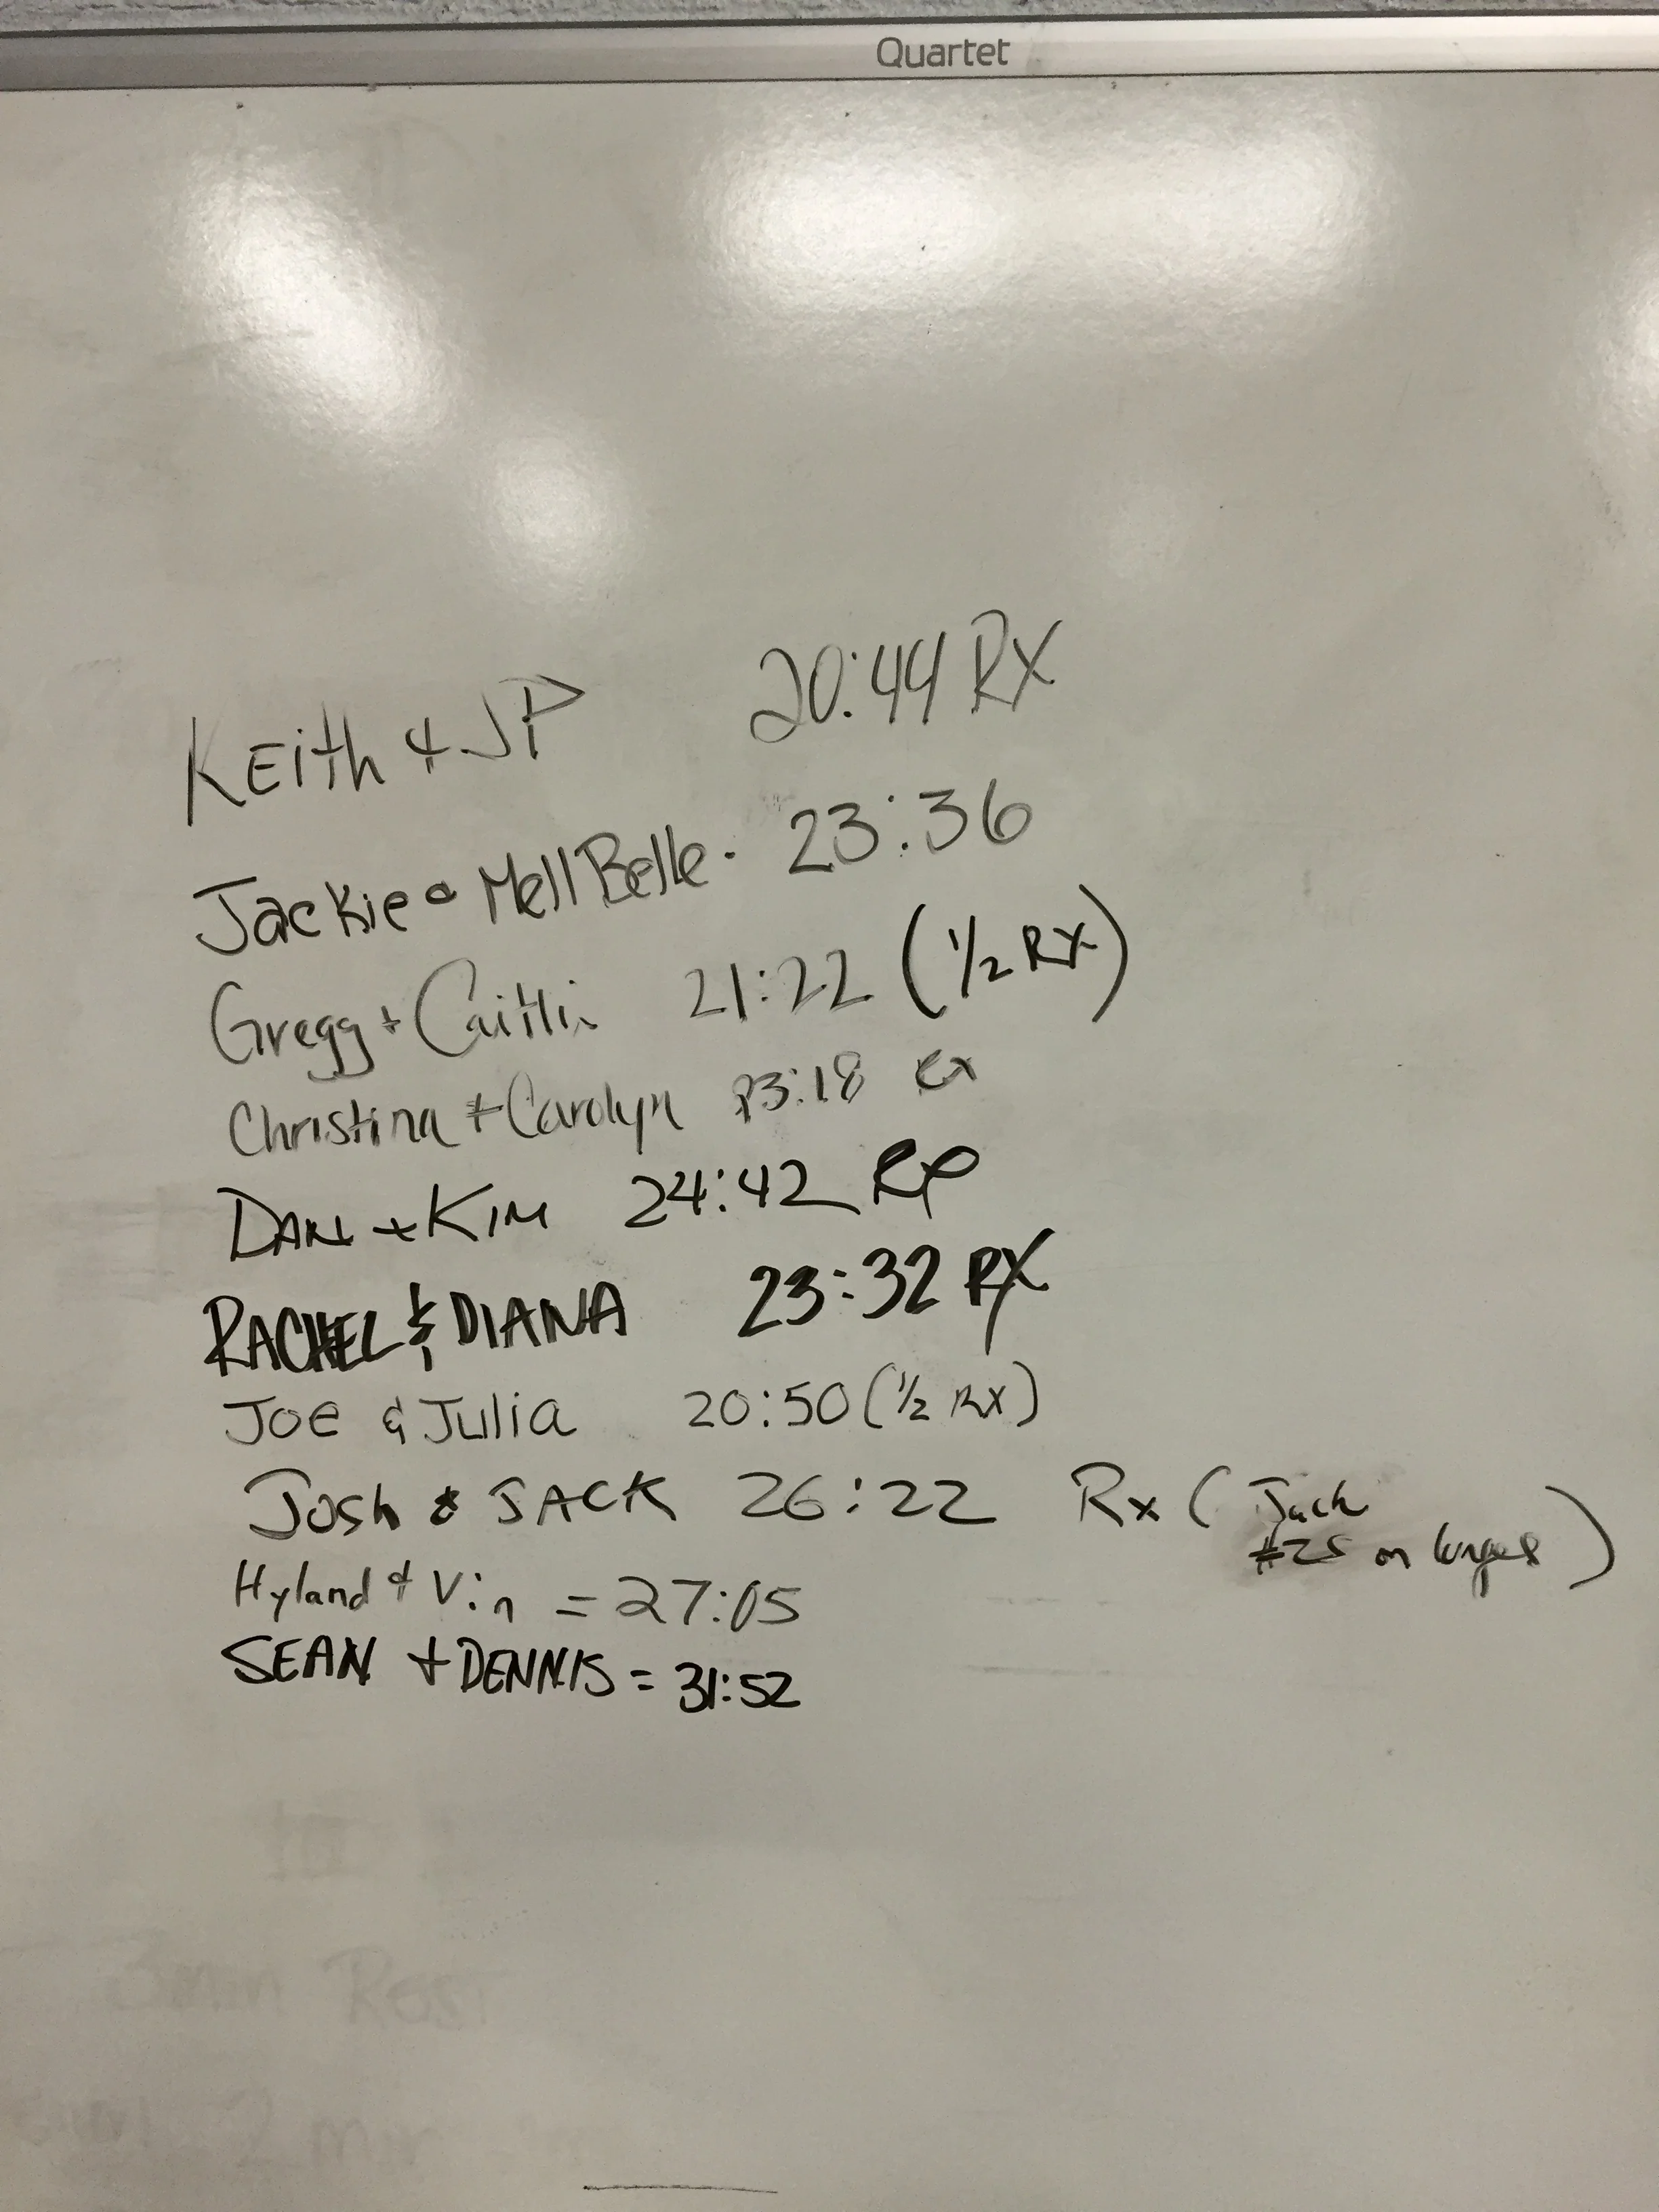 Quartet
KEith & JP 20:44 RX
Jackie & MellBelle. 23:36
Gregg + Caitlin 21:22 (1/2 RX)
Christina + Carolyn 23:18 Rx
DAN + KIM 24:42 RX
RACHEL & DIANA 23:32 RX
Joe & Julia 20:50 (1/2 RX)
Josh & JACK 26:22 Rx (Jack
#25 on lunges)
Hyland & Vin = 27:05
SEAN + DENNIS = 31:52
3 min Rest
2 min